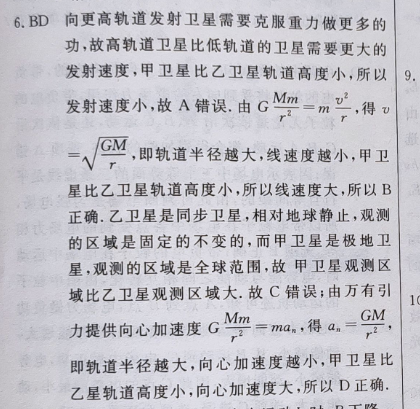 6. BD 向更高轨道发射卫星需要克服重力做更多的
功,故高轨道卫星比低轨道的卫星需要更大的
发射速度,甲卫星比乙卫星轨道高度小,所以
发射速度小,故 A 错误. 由 G\frac{Mm}{r^2}=m\frac{v^2}{r},得 v
=\sqrt{\frac{GM}{r}},即轨道半径越大,线速度越小,甲卫
星比乙卫星轨道高度小,所以线速度大,所以 B
正确. 乙卫星是同步卫星,相对地球静止,观测
的区域是固定的不变的,而甲卫星是极地卫
星,观测的区域是全球范围,故 甲卫星观测区
域比乙卫星观测区域大. 故 C 错误;由万有引
力提供向心加速度 G\frac{Mm}{r^2}=ma_n,得 a_n=\frac{GM}{r^2},
即轨道半径越大,向心加速度越小,甲卫星比
乙星轨道高度小,向心加速度大,所以 D 正确.
9.
10